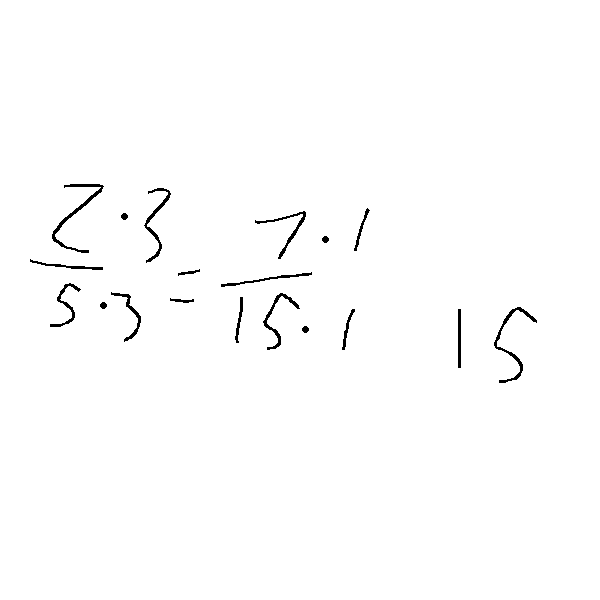 2·3/5·3 = 7·1/15·1 15